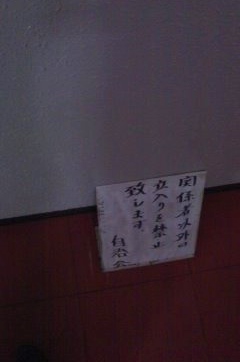 関係者以外の
立入りを禁止
致します。
自治会